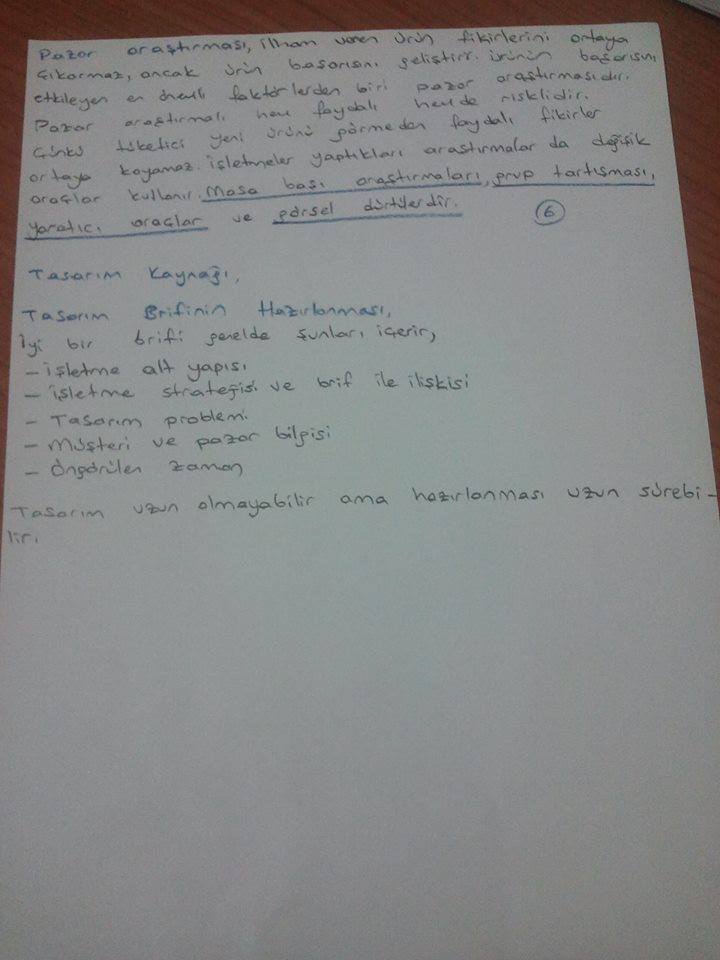 Pazar araştırması, ilham veren ürün fikirlerini ortaya
çıkarmaz, ancak ürün başarısını geliştirir. ürünün başarısını
etkileyen en önemli faktörlerden biri pazar araştırmasıdır.
Pazar araştırmalı hem faydalı hemde risklidir.
Çünkü tüketici yeni ürünü görmeden faydalı fikirler
ortaya koyamaz. işletmeler yaptıkları araştırmalar da değişik
araçlar kullanır. Masa başı araştırmaları, grup tartışması,
yaratıcı araçlar ve görsel dürtülerdir. 6
Tasarım Kaynağı,
Tasarım Brifinin Hazırlanması,
İyi bir brifi genelde şunları içerir,
- işletme alt yapısı
- işletme stratejisi ve brif ile ilişkisi
- Tasarım problemi
- Müşteri ve pazar bilgisi
- Öngörülen zaman
Tasarım uzun olmayabilir ama hazırlanması uzun sürebi-
lir.